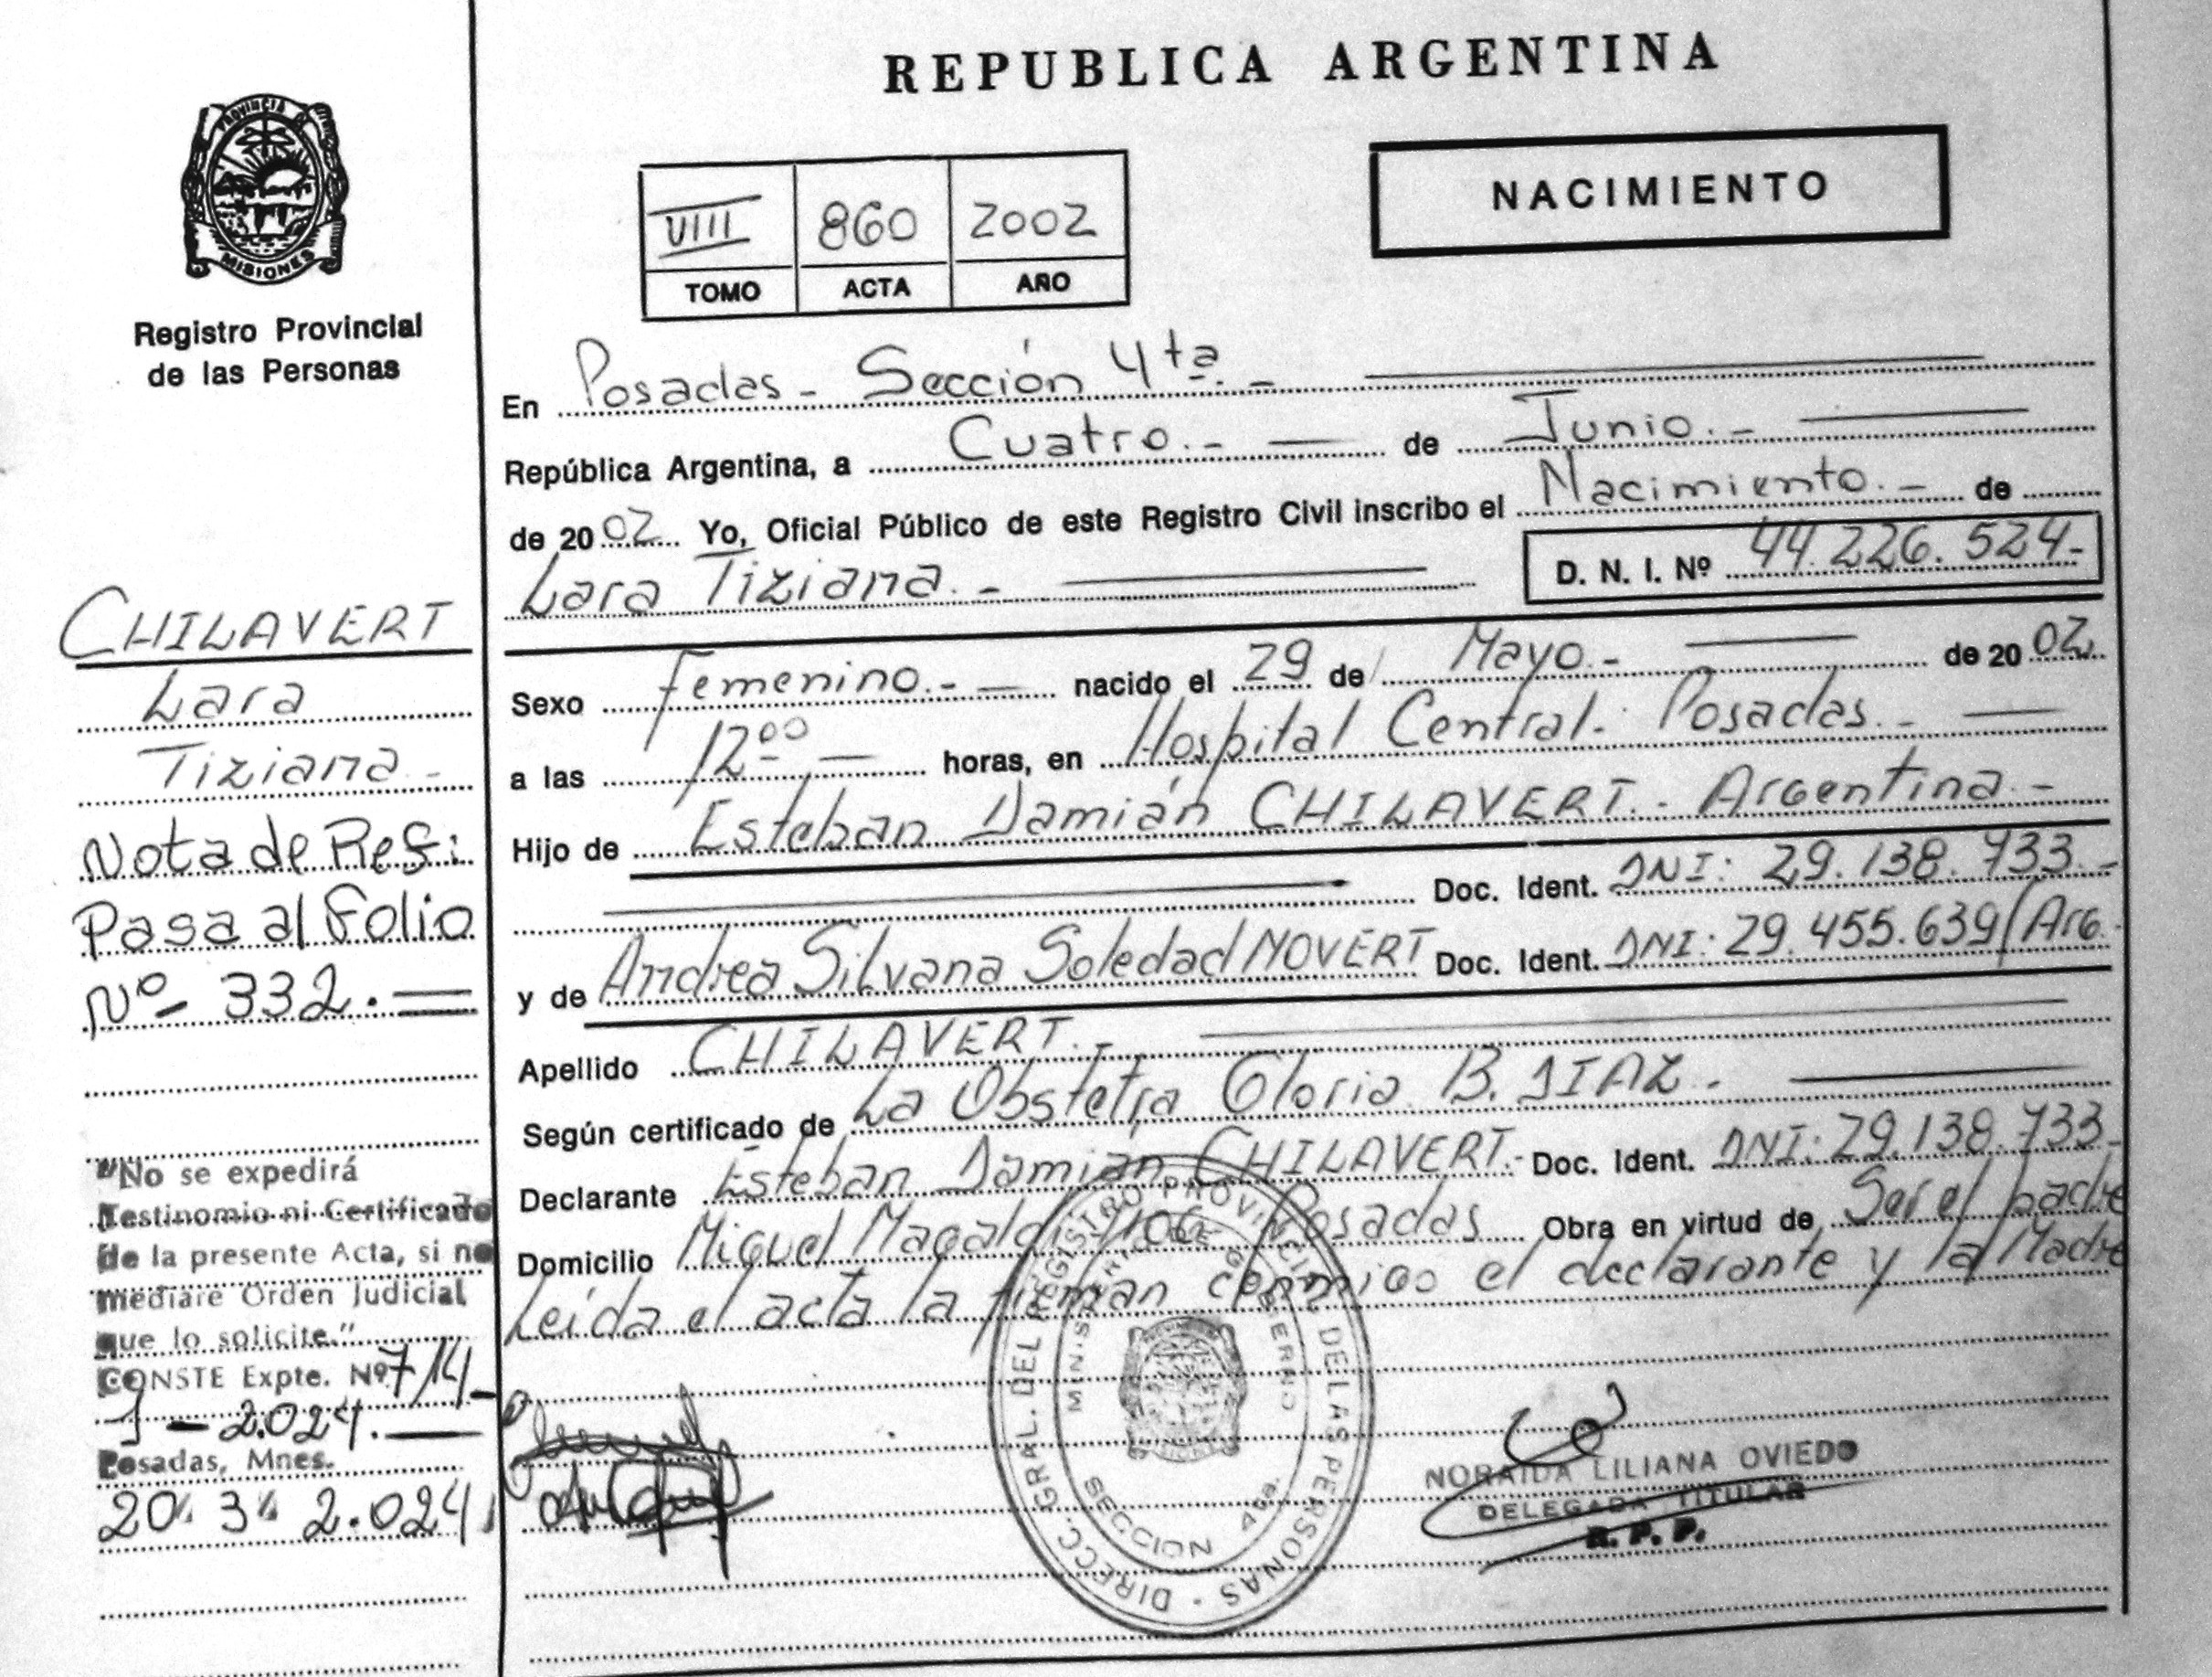 REPUBLICA ARGENTINA
PROVINCIA DE
MISIONES
Registro Provincial
de las Personas
NACIMIENTO
VIII 860 2002
TOMO ACTA AÑO
En Posadas - Sección 4ta. -
República Argentina, a Cuatro.- de Junio.-
de 2002 Yo, Oficial Público de este Registro Civil inscribo el Nacimiento.- de
Lara Tiziana.- D. N. I. Nº 44.226.524-
Sexo Femenino.- nacido el 29 de Mayo.- de 2002
a las 12ºº horas, en Hospital Central. Posadas.-
Hijo de Esteban Damián CHILAVERT.- Argentina.-
Doc. Ident. DNI: 29.138.733.-
y de Andrea Silvana Soledad NOVERT Doc. Ident. DNI: 29.455.639/Arg.
Apellido CHILAVERT.-
Según certificado de La Obstetra Gloria B. DIAZ.
Declarante Esteban Damián CHILAVERT.- Doc. Ident. DNI: 29.138.733-
Domicilio Miguel Magaldi Posadas Obra en virtud de Ser el padre
Leída el acta la firman conmigo el declarante y la Madre
CHILAVERT
Lara
Tiziana-
Nota de Ref:
Pasa al Folio
Nº 332.=
"No se expedirá
Testinomio ni Certificado
de la presente Acta, si no
mediare Orden Judicial
que lo solicite."
CONSTE Expte. Nº 714-
J-2.024.
Posadas, Mnes.
20 3 2.024
DIRECC. GRAL. DEL REGISTRO PROVINCIAL DE LAS PERSONAS
SECCION 4ta.
NORAIDA LILIANA OVIEDO
DELEGADA TITULAR
R. P. P.